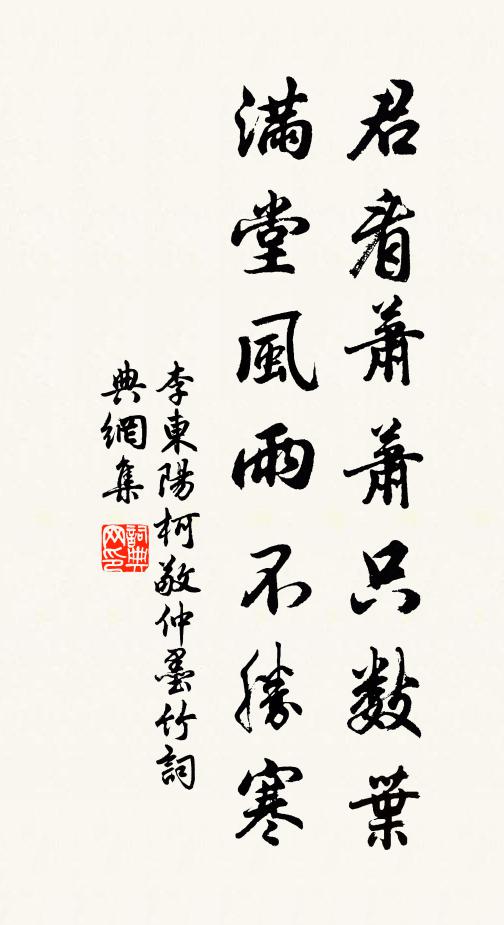 君看蕭蕭只數葉
滿堂風雨不勝寒
李東陽柯敬仲墨竹詞
典網集
詞典
网印